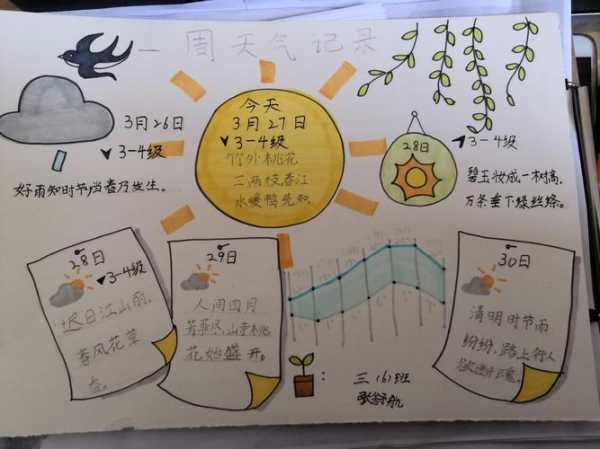 一周天气记录
3月26日
3-4级
好雨知时节,当春乃发生。
今天
3月27日
3-4级
竹外桃花
三两枝,春江
水暖鸭先知。
28日
3-4级
碧玉妆成一树高,
万条垂下绿丝绦。
28日
3-4级
迟日江山丽,
春风花草
香。
29日
人间四月
芳菲尽,山寺桃
花始盛开。
30日
清明时节雨
纷纷,路上行人
欲断魂。
三(6)班